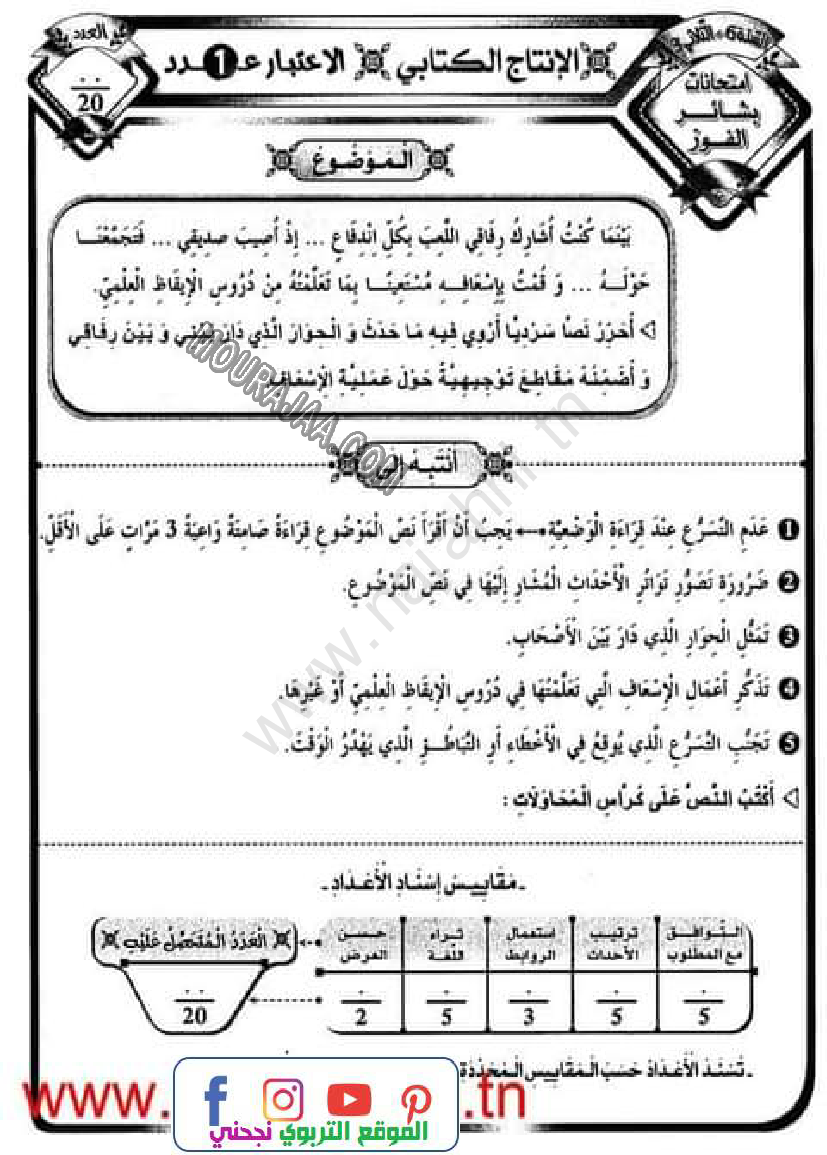 السنة 6 • الثلاثي 3
امتحانات
بشائر
الفوز
الإنتاج الكتابي
الاختبار عـ1ـدد
العدد
20
الْمَوْضُوعُ
بَيْنَمَا كُنْتُ أُشَارِكُ رِفَاقِي اللَّعِبَ بِكُلِّ اِنْدِفَاعٍ ... إِذْ أُصِيبَ صَدِيقِي ... فَتَجَمَّعْنَا
حَوْلَهُ ... وَ قُمْتُ بِإِسْعَافِهِ مُسْتَعِينًا بِمَا تَعَلَّمْتُهُ مِنْ دُرُوسِ الْإِيقَاظِ الْعِلْمِيِّ.
أُحَرِّرُ نَصًّا سَرْدِيًّا أَرْوِي فِيهِ مَا حَدَثَ وَ الْحِوَارَ الَّذِي دَارَ بَيْنِي وَ بَيْنَ رِفَاقِي
وَ أُضَمِّنُهُ مَقَاطِعَ تَوْجِيهِيَّةً حَوْلَ عَمَلِيَّةِ الْإِسْعَافِ.
MOURAJAA.COM
أَنْتَبِهُ إِلَى
1 عَدَمِ التَّسَرُّعِ عِنْدَ قِرَاءَةِ الْوَضْعِيَّةِ ←→ يَجِبُ أَنْ أَقْرَأَ نَصَّ الْمَوْضُوعِ قِرَاءَةً صَامِتَةً وَاعِيَةً 3 مَرَّاتٍ عَلَى الْأَقَلِّ.
2 ضَرُورَةِ تَصَوُّرِ تَوَاتُرِ الْأَحْدَاثِ الْمُشَارِ إِلَيْهَا فِي نَصِّ الْمَوْضُوعِ.
3 تَمَثُّلِ الْحِوَارِ الَّذِي دَارَ بَيْنَ الْأَصْحَابِ.
4 تَذَكُّرِ أَعْمَالِ الْإِسْعَافِ الَّتِي تَعَلَّمْتُهَا فِي دُرُوسِ الْإِيقَاظِ الْعِلْمِيِّ أَوْ غَيْرِهَا.
5 تَجَنُّبِ التَّسَرُّعِ الَّذِي يُوقِعُ فِي الْأَخْطَاءِ أَوِ التَّبَاطُؤِ الَّذِي يَهْدُرُ الْوَقْتَ.
أَكْتُبُ النَّصَّ عَلَى كُرَّاسِ الْمُحَاوَلَاتِ :
- مَقَايِيسُ إِسْنَادِ الْأَعْدَادِ -
التّوافق مع المطلوب
ترتيب الأحداث
استعمال الروابط
ثراء اللّغة
حسن العرض
الْعَدَدُ الْمُتَحَصَّلُ عَلَيْهِ
5
5
3
5
2
20
تُسْنَدُ الْأَعْدَادُ حَسَبَ الْمَقَايِيسِ الْمُحَدَّدَةِ
www.
.tn
الموقع التربوي نجحني